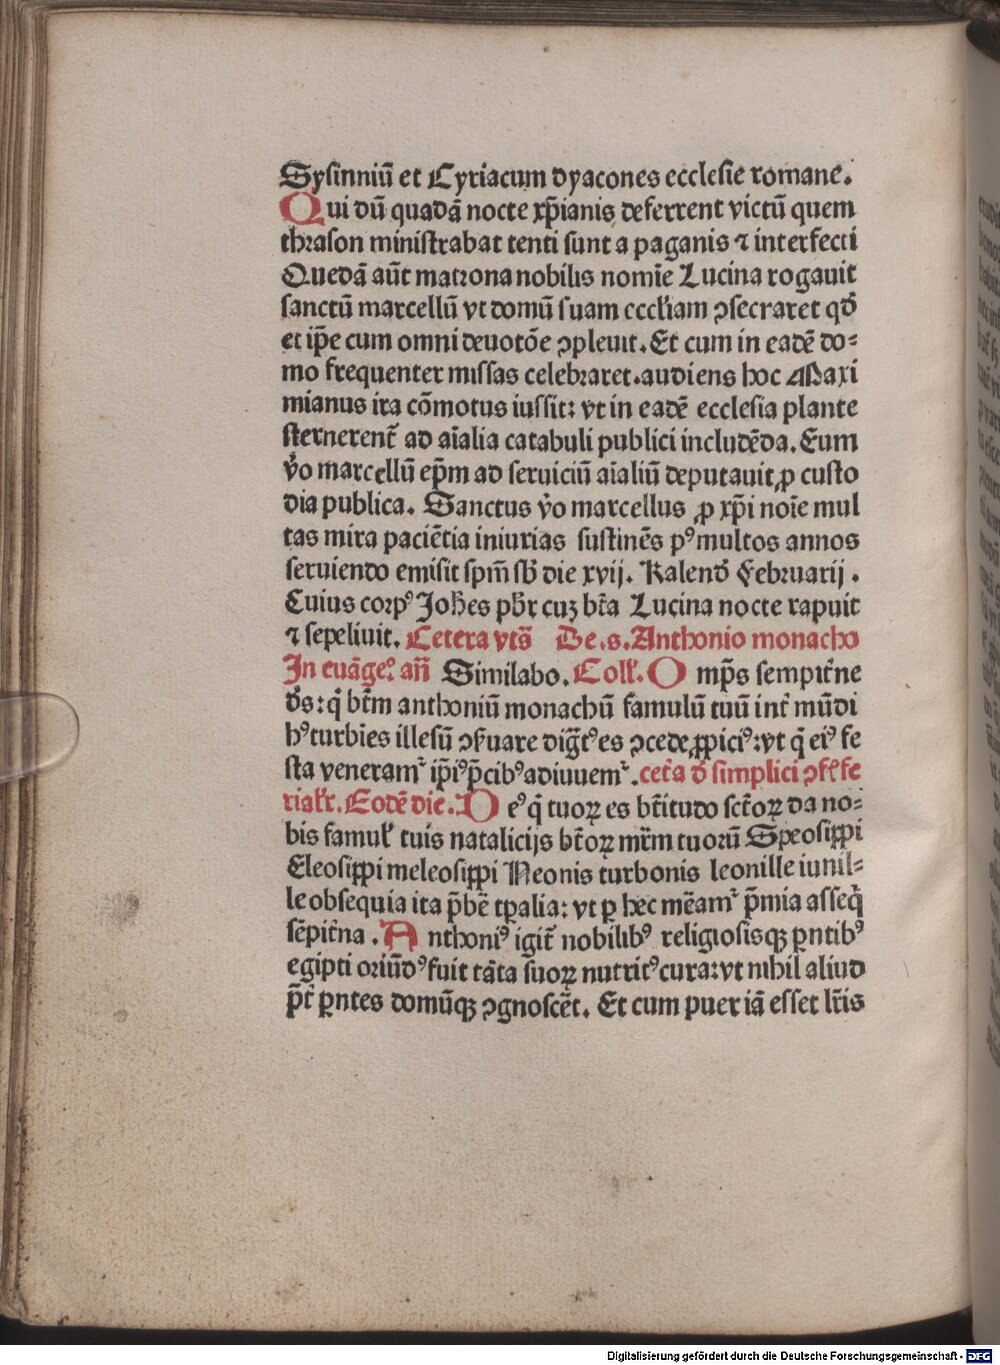 Sysinniū et Cyriacum dyacones ecclesie romane.
Qui dū quadā nocte xp̄ianis deferrent victū quem
thrason ministrabat tenti sunt a paganis ⁊ interfecti
Quedā aūt matrona nobilis nomīe Lucina rogauit
sanctū marcellū vt domū suam eccl'iam ꝯsecraret qd̄
et ip̄e cum omni deuotōe ꝯpleuit. Et cum in eadē do⸗
mo frequenter missas celebraret. audiens hoc Maxi
mianus ira cōmotus iussit: vt in eadē ecclesia plante
sternerent̄ ad aīalia catabuli publici includēda. Eum
v̄o marcellū ep̄m ad seruiciū aīaliū deputauit ꝓ custo
dia publica. Sanctus v̄o marcellus ꝓ xp̄i noīe mul
tas mira paciētia iniurias sustinēs pꝰ multos annos
seruiendo emisit spm̄ sb̄ die xvij. Kalend̄ Februarij.
Cuius corpꝰ Joh̄es pb̄r cuz bt̄a Lucina nocte rapuit
⁊ sepeliuit. Cetera vts̄ De .s. Anthonio monacho
In euāgeꝰ. an̄ Similabo. Coll'. O mp̄s sempit̄ne
d̄s: q̄ bt̄m anthoniū monachū famulū tuū int̄ mūdi
hꝰ turbies illesū ꝯẜuare diḡtꝰ es ꝯcede ꝓpiciꝰ: vt q̄ eiꝰ fe
sta veneramᷣ ip̄iꝰ p̄cibꝰ adiuuemᷣ. cet̄a d̄ simplici ꝯf' fe
rial'r. Eodē die. D eꝰ q̄ tuoꝝ es bt̄itudo sct̄oꝝ da no⸗
bis famul' tuis natalicijs bt̄oꝝ mr̄m tuorū Speosippi
Eleosippi meleosippi Neonis turbonis leonille iunil⸗
le obsequia ita p̄bē tꝑalia: vt ꝑ hec mēamᷣ p̄mia asseq̄
sēpit̄na. A nthoniꝰ igit̄ nobilibꝰ religiosisqꝫ ꝑntibꝰ
egipti oriūdꝰ fuit tāta suoꝝ nutritꝰ cura: vt nihil aliud
p̄t̄ ꝑntes domūqꝫ ꝯgnoscēt. Et cum puer iā esset lr̄is
Digitalisierung gefördert durch die Deutsche Forschungsgemeinschaft - DFG